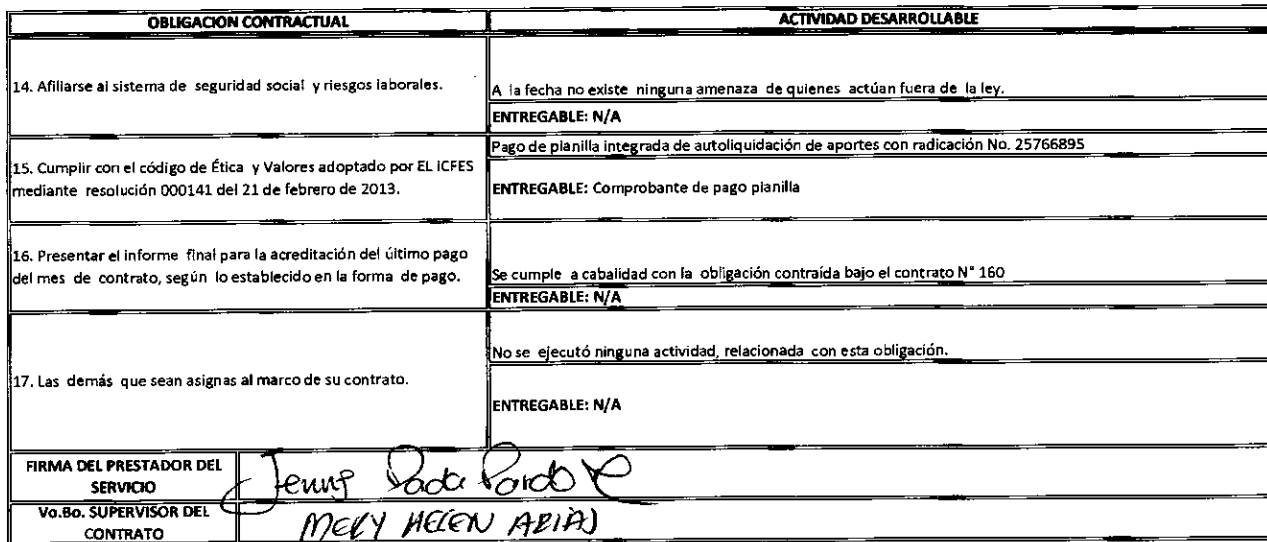 OBLIGACION CONTRACTUAL
ACTIVIDAD DESARROLLABLE
14. Afiliarse al sistema de seguridad social y riesgos laborales.
A la fecha no existe ninguna amenaza de quienes actúan fuera de la ley.
ENTREGABLE: N/A
15. Cumplir con el código de Ética y Valores adoptado por EL ICFES
mediante resolución 000141 del 21 de febrero de 2013.
Pago de planilla integrada de autoliquidación de aportes con radicación No. 25766895
ENTREGABLE: Comprobante de pago planilla
16. Presentar el informe final para la acreditación del último pago
del mes de contrato, según lo establecido en la forma de pago.
Se cumple a cabalidad con la obligación contraída bajo el contrato N° 160
ENTREGABLE: N/A
17. Las demás que sean asignas al marco de su contrato.
No se ejecutó ninguna actividad, relacionada con esta obligación.
ENTREGABLE: N/A
FIRMA DEL PRESTADOR DEL
SERVICIO
Jenny Pardo
Vo.Bo. SUPERVISOR DEL
CONTRATO
MERY HELEN ARIAS